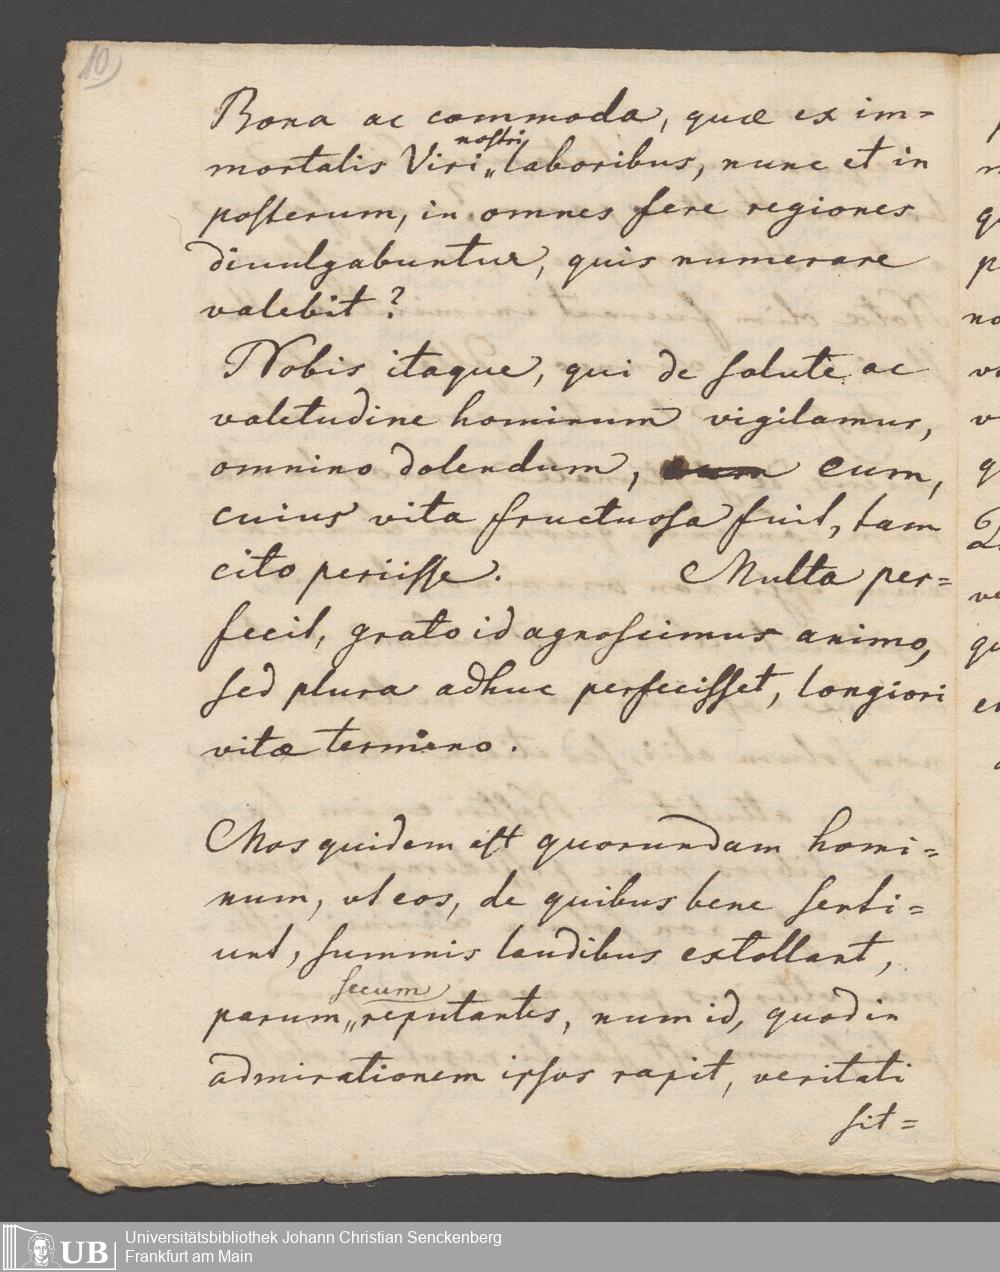 10)
Bona ac commoda, quæ ex im=
mortalis Viri „ nostri laboribus, nunc et in
posterum, in omnes fere regiones
divulgabuntur, quis numerare
valebit?
Nobis itaque, qui de salute ac
valetudine hominum vigilamus,
omnino dolendum, eum,
cuius vita fructuosa fuit, tam
cito periisse. Multa per=
fecit, grato id agnoscimus animo,
sed plura adhuc perfecisset, longiori
vitæ termino.
Mos quidem est quorundam homi=
num, ut eos, de quibus bene senti=
unt, summis laudibus extollant,
parum „ secum reputantes, num id, quod in
admirationem ipsos rapit, veritati
sit=
UB
Universitätsbibliothek Johann Christian Senckenberg
Frankfurt am Main